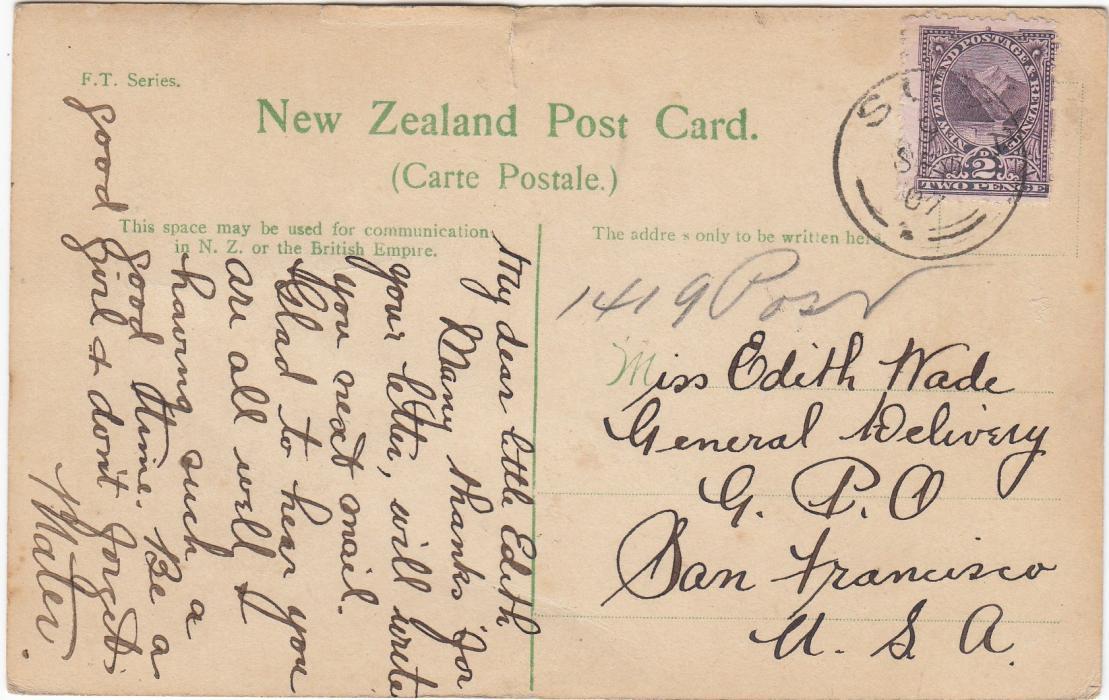 F.T. Series.
New Zealand Post Card.
(Carte Postale.)
This space may be used for communication
in N. Z. or the British Empire.
The addre s only to be written here.
NEW ZEALAND POSTAGE & REVENUE
2D
TWO PENCE
07
My dear little Edith
Many thanks for
your letter, will write
you next mail.
Glad to hear you
are all well &
having such a
good time. Be a
good girl & don't forget
Mater.
1419 Post
Miss Edith Wade
General Delivery
G. P. O
San Francisco
U. S. A.